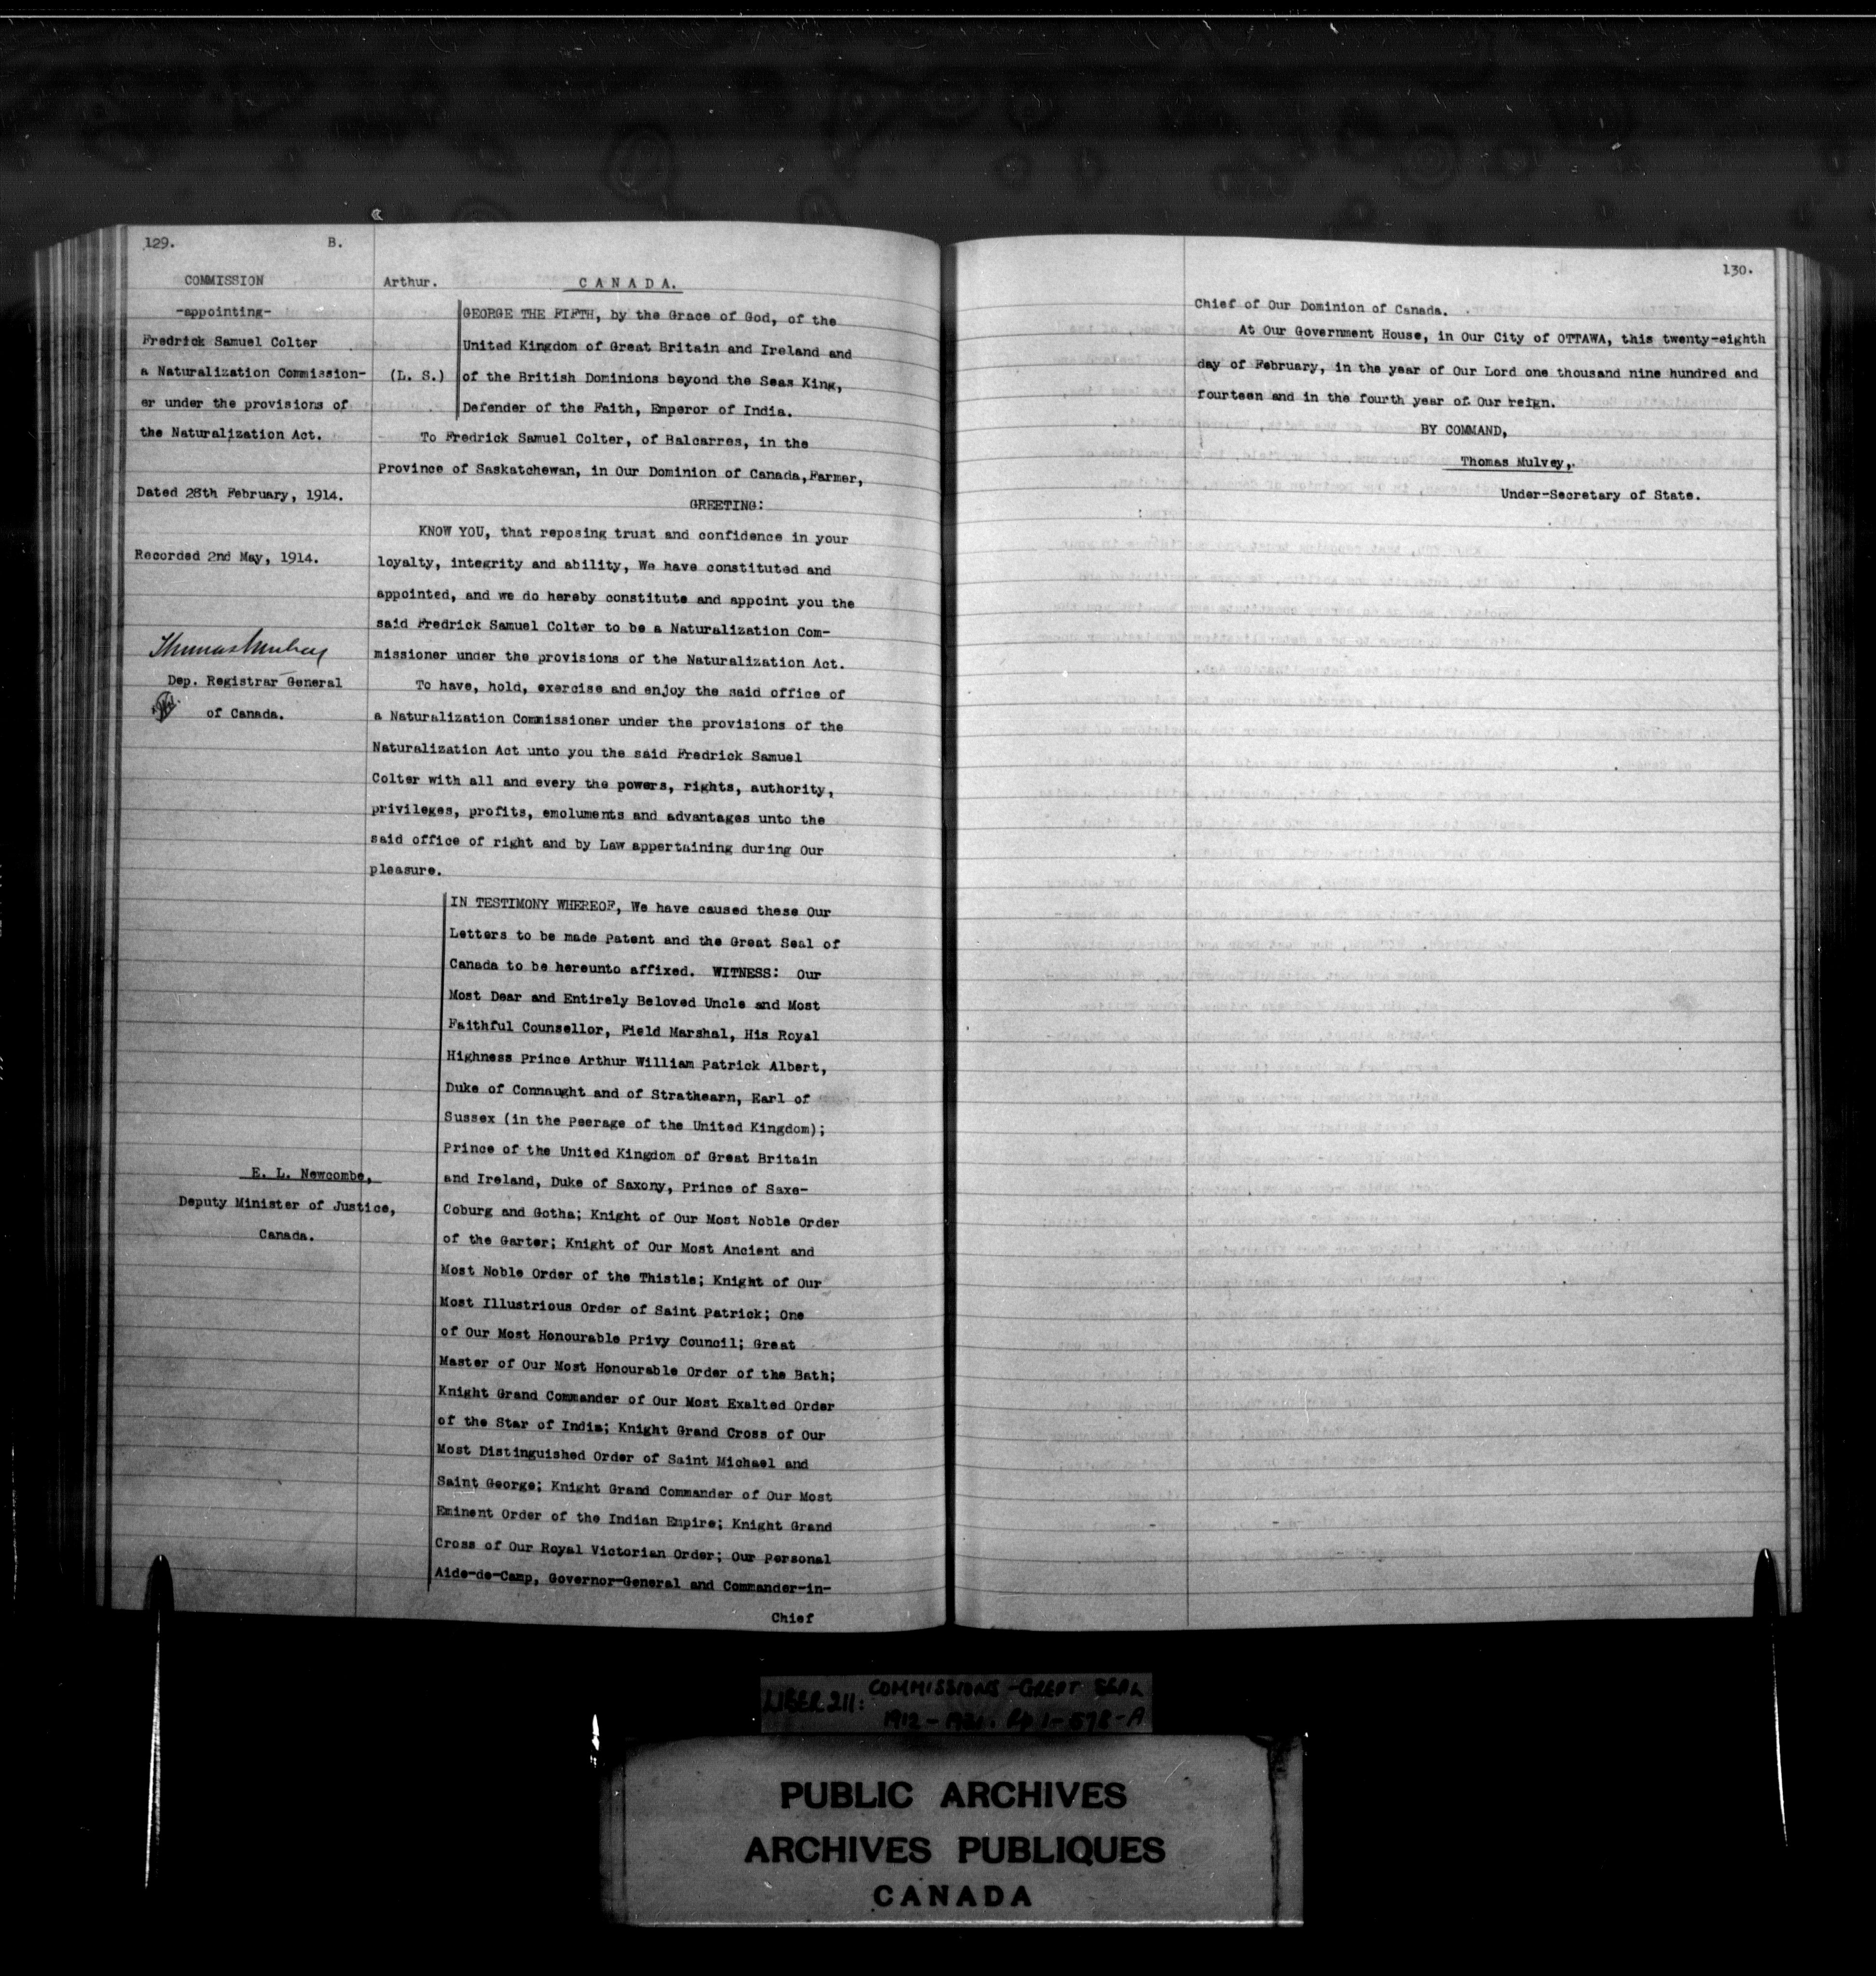 129. B.
COMMISSION
-appointing-
Fredrick Samuel Colter
a Naturalization Commission-
er under the provisions of
the Naturalization Act.
Dated 28th February, 1914.
Recorded 2nd May, 1914.
Thomas Mulvey
Dep. Registrar General
of Canada.
E. L. Newcombe,
Deputy Minister of Justice,
Canada.
Arthur. CANADA.
GEORGE THE FIFTH, by the Grace of God, of the
United Kingdom of Great Britain and Ireland and
(L. S.) of the British Dominions beyond the Seas King,
Defender of the Faith, Emperor of India.
To Fredrick Samuel Colter, of Balcarres, in the
Province of Saskatchewan, in Our Dominion of Canada, Farmer,
GREETING:
KNOW YOU, that reposing trust and confidence in your
loyalty, integrity and ability, We have constituted and
appointed, and we do hereby constitute and appoint you the
said Fredrick Samuel Colter to be a Naturalization Com-
missioner under the provisions of the Naturalization Act.
To have, hold, exercise and enjoy the said office of
a Naturalization Commissioner under the provisions of the
Naturalization Act unto you the said Fredrick Samuel
Colter with all and every the powers, rights, authority,
privileges, profits, emoluments and advantages unto the
said office of right and by Law appertaining during Our
pleasure.
IN TESTIMONY WHEREOF, We have caused these Our
Letters to be made Patent and the Great Seal of
Canada to be hereunto affixed. WITNESS: Our
Most Dear and Entirely Beloved Uncle and Most
Faithful Counsellor, Field Marshal, His Royal
Highness Prince Arthur William Patrick Albert,
Duke of Connaught and of Strathearn, Earl of
Sussex (in the Peerage of the United Kingdom);
Prince of the United Kingdom of Great Britain
and Ireland, Duke of Saxony, Prince of Saxe-
Coburg and Gotha; Knight of Our Most Noble Order
of the Garter; Knight of Our Most Ancient and
Most Noble Order of the Thistle; Knight of Our
Most Illustrious Order of Saint Patrick; One
of Our Most Honourable Privy Council; Great
Master of Our Most Honourable Order of the Bath;
Knight Grand Commander of Our Most Exalted Order
of the Star of India; Knight Grand Cross of Our
Most Distinguished Order of Saint Michael and
Saint George; Knight Grand Commander of Our Most
Eminent Order of the Indian Empire; Knight Grand
Cross of Our Royal Victorian Order; Our Personal
Aide-de-Camp, Governor-General and Commander-in-
Chief
130.
Chief of Our Dominion of Canada.
At Our Government House, in Our City of OTTAWA, this twenty-eighth
day of February, in the year of Our Lord one thousand nine hundred and
fourteen and in the fourth year of Our reign.
BY COMMAND,
Thomas Mulvey,
Under-Secretary of State.
LIBER 211: COMMISSIONS - GREAT SEAL
1912 - 1921. Pp 1-578-A
PUBLIC ARCHIVES
ARCHIVES PUBLIQUES
CANADA